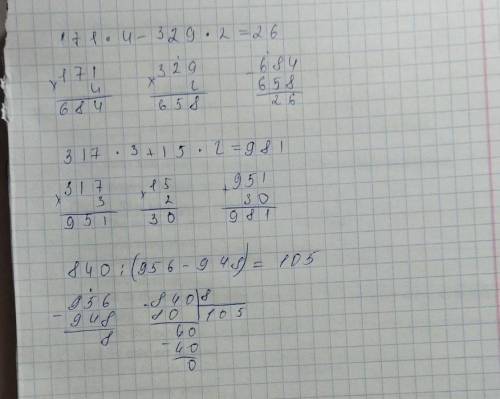 171 · 4 - 329 · 2 = 26
171 329 684
× 4 × 2 - 658
684 658 26
317 · 3 + 15 · 2 = 981
317 15 951
× 3 × 2 + 30
951 30 981
840 : (956 - 948) = 105
956 840 8
- 948 - 80 105
8 40
- 40
0